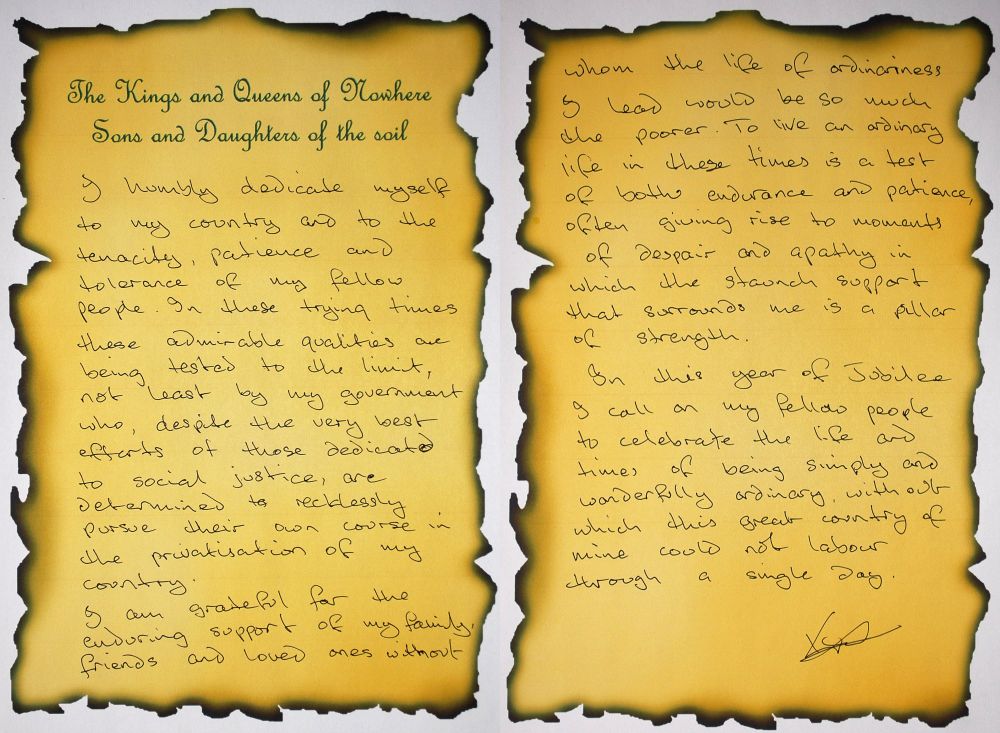 The Kings and Queens of Nowhere
Sons and Daughters of the soil
I humbly dedicate myself
to my country and to the
tenacity, patience and
tolerance of my fellow
people. In these trying times
these admirable qualities are
being tested to the limit,
not least by my government
who, despite the very best
efforts of those dedicated
to social justice, are
determined to recklessly
pursue their own course in
the privatisation of my
country.
I am grateful for the
enduring support of my family,
friends and loved ones without
whom the life of ordinariness
I lead would be so much
the poorer. To live an ordinary
life in these times is a test
of both endurance and patience,
often giving rise to moments
of despair and apathy in
which the staunch support
that surrounds me is a pillar
of strength.
In this year of Jubilee
I call on my fellow people
to celebrate the life and
times of being simply and
wonderfully ordinary, without
which this great country of
mine could not labour
through a single day.